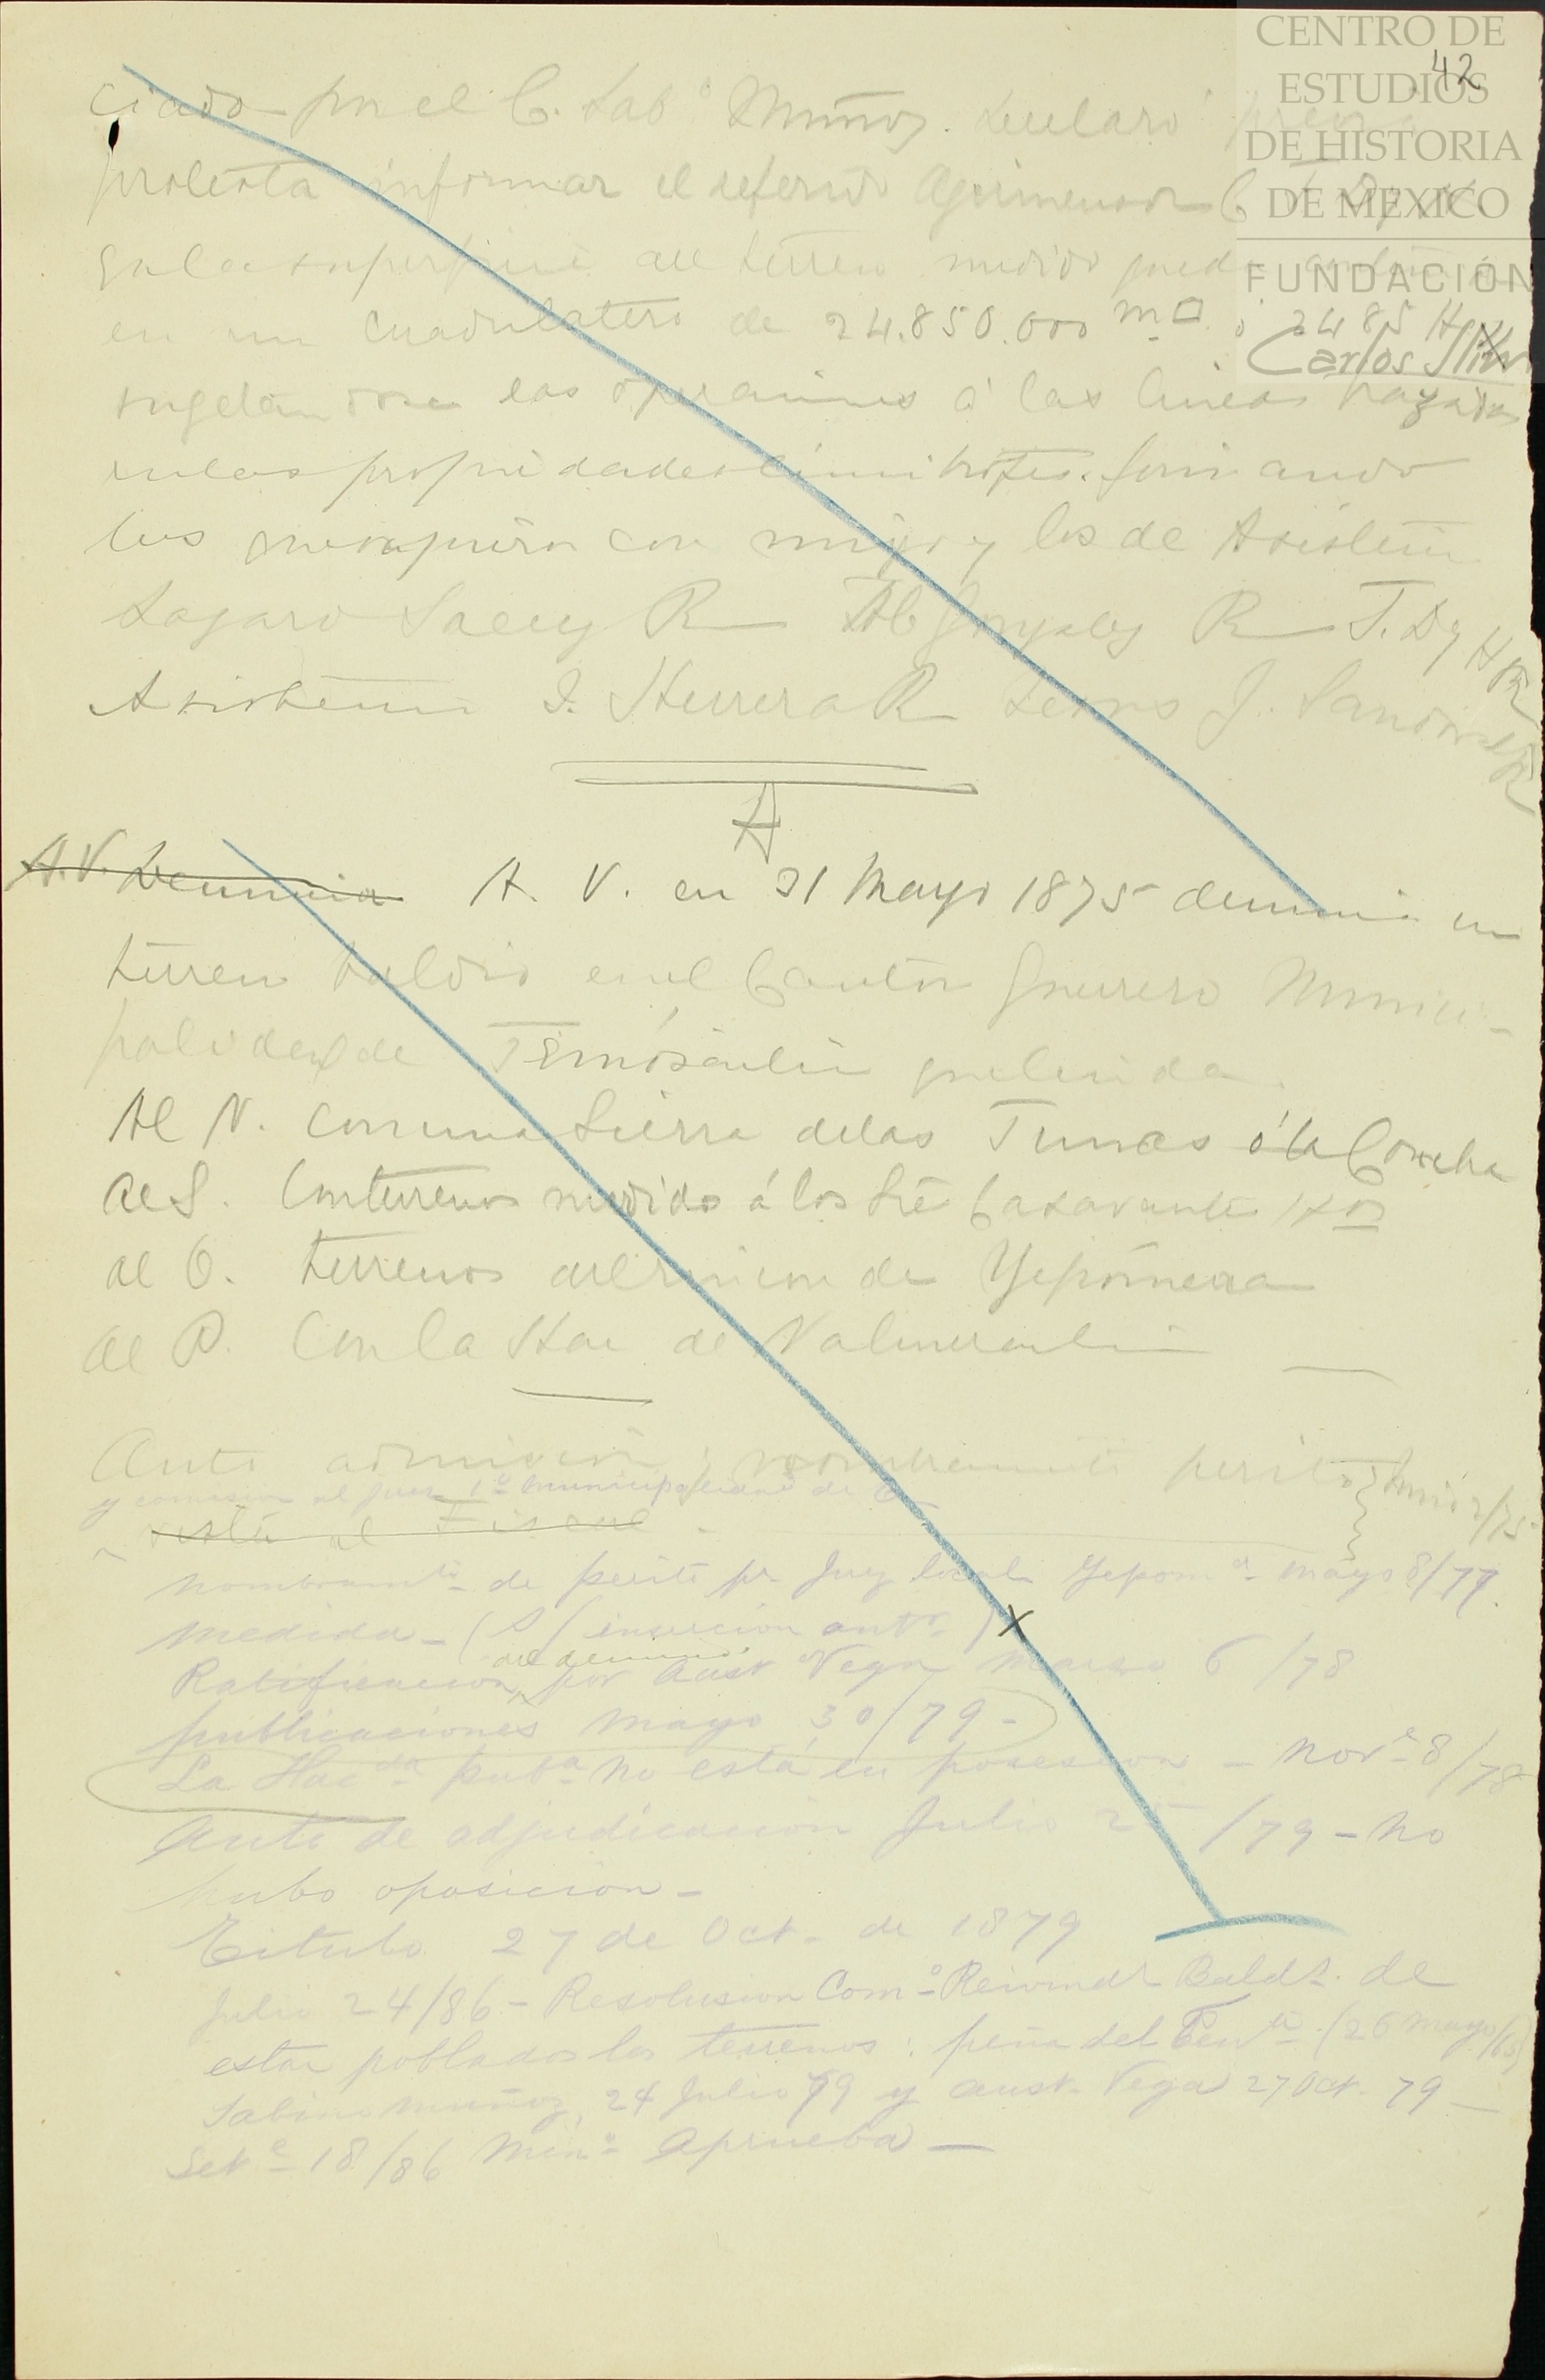 CENTRO DE
ESTUDIOS
DE HISTORIA
DE MEXICO
FUNDACIÓN
Carlos Slim
42
ciado por el C. Sabº Muñoz. declaró previa
protesta informar el referido Agrimensor C. T. Dg
q la superficie del terreno medido queda
en un cuadrilatero de 24.850.000 m□ ó 2485 H
sugetandose las operaciones á las lineas trazadas
en las propiedades limitrofes. firmando
los conmigo y los de Asistencia
Lazaro Saenz R Ab Gonzalez R T. Dg H R
Asistencia J. Herrera R Jesus J. Sandoval R
A
A. V. Denuncia A. V. en 31 Mayo 1875 denuncia un
terreno baldio en el Canton Guerrero Munici-
palidad de Temósachic q colinda
Al N. con una Sierra de las Tunas ó la Concha
Al S. Con terrenos medidos á los Sres Casavantes Hos
al O. terrenos del rincon de Yepómera
Al P. Con la Hac de
Auto admision y nombramiento perito Junio 2/75
y comision al Juez 1º municipalidad de
vista al Fiscal
nombramto de perito pr Juez local Yepomª mayo 8/77.
medida - (S/ insercion antr) X
Ratificacion del denuncio por Aust Vega Marzo 6/78
publicaciones mayo 30/79 -
La Hacda puba no está en posesion - Nove 8/78
Auto de adjudicacion Julio 25/79 - no
hubo oposicion -
Titulo 27 de Oct. de 1879
Julio 24/86 - Resolusion Comº Reivindr Bald. de
estar poblados los terrenos: peña del (26 Mayo/
Sabino Muñoz, 24 Julio 79 y Aust. Vega 27 Oct. 79 -
Sete 18/86 Minº Aprueba -